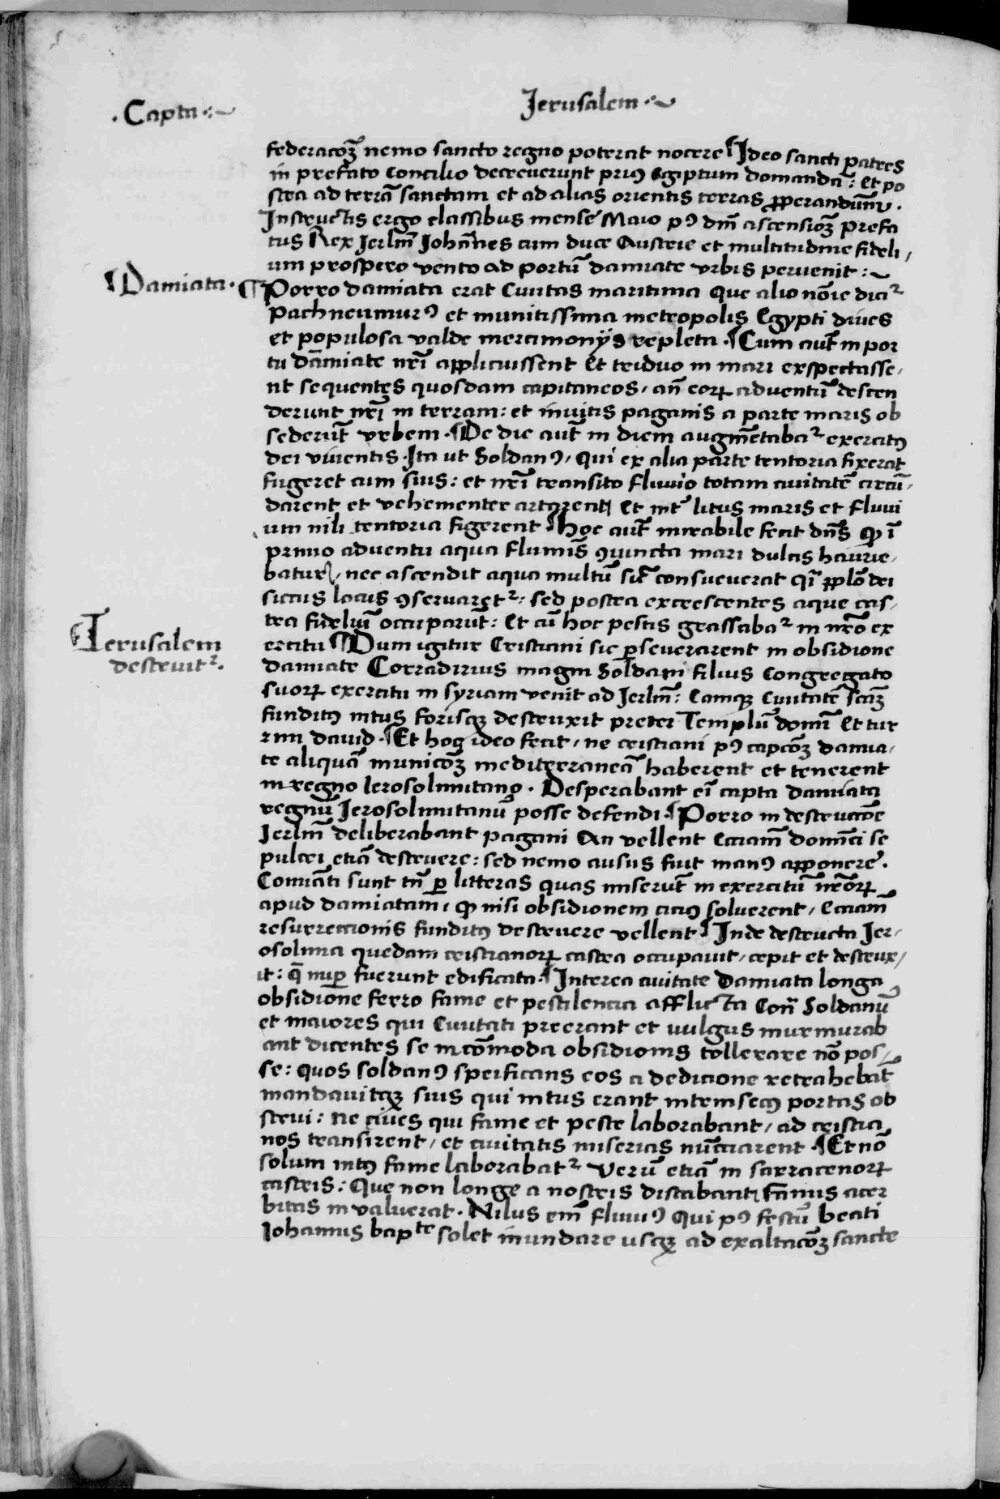 · Capta ·:~
Jerusalem ·:~
federacoȝ nemo sancto regno poterat nocere ¶ Ideo sancti patres
in prefato Concilio decreuerunt priꝰ Egiptum domandā : Et po
stea ad terrā sanctam et ad alias orientis terras ꝓperandum̄ .
Instructis ergo classibus mense Maio pꝰ dm̄ ascensioȝ prefa
tus Rex Jerlm̄ Johānes cum duce Austrie et multitudine fideli,
um prospero vento ad portū damiate vrbis peruenit :~
¶ Damiata .
¶ Porro damiata erat Ciuitas maritima Que alio noīe dicit᷑
Pachneumurꝰ et munitissima metropolis Egypti diues
et populosa valde mercimonijs repleta . ¶ Cum aut̄ in por
tu damiate nr̄i applicuissent Et triduo in mari exspectasse,
nt sequentes quosdam capitaneos, an̄ eoꝝ aduentū descen
derunt nr̄i in terram : et inuitis paganis a parte maris ob
sederūt vrbem . ¶ De die aut̄ in diem augmētabat᷑ exercitꝰ
dei viuentis . Ita ut Soldanꝰ, Qui ex alia parte tentoria fixerat
fugeret cum suis : et nr̄i transito fluuio totam ciuitatē circū,
darent et vehementer artarent Et int᷑ litus maris et fluui
um nili tentoria figerent . Hoc aut̄ mirabile fecit dn̄s ꝙ ī
primo aduentu aqua fluminis ꝯiuncta mari dulcis haurie,
batur, nec ascendit aqua multū sic̄ consueuerat qͥ ppl̄o dei
siccus locus ꝯseruaret᷑ : sed postea excrescentes aque cas,
tra fideliū occuparūt : Et cū hoc pestis grassabat᷑ in nr̄o ex
Jerusalem
destruit᷑ .
ercitu ¶ Dum igitur Cristiani sic ꝑseuerarent in obsidione
damiate Corradirius magni Soldani filius Congregato
suoꝝ exercitu in syriam venit ad Jerlm̄ : Eamqꝫ Ciuitatē scāȝ
funditꝰ intus forisqꝫ destruxit preter Templū domī Et tur
rim dauid . ¶ Et hoc ideo fecit, ne cristiani pꝰ capcōȝ damia,
te aliquā municōȝ mediterraneā haberent et tenerent
in regno Ierosolimitano . Desperabant eī capta damiata
regnū Jerosolimitanū posse defendi ¶ Porro in destructōe
Jerlm̄ deliberabant pagani An vellent Ecciam̄ domīci se
pulcri etiā destruere : sed nemo ausus fuit manꝰ apponere .
Comīati sunt tn̄ ꝑ litteras quas miserūt in exercitū nr̄oꝝ
apud damiatam, ꝙ nisi obsidionem citiꝰ soluerent, Ecciam̄
resurrectionis funditꝰ destruere vellent ¶ Inde destructa Jer,
osolima quedam cristianoꝝ castra occupauit, cepit et destrux,
it : q̄ nuꝑ fuerunt edificata . ¶ Interea ciuitate Damiata longa
obsidione ferro fame et pestilencia afflicta Con̄ Soldanū
et maiores qui Ciuitati preerant et uulgus murmurab
ant dicentes se incōmoda obsidionis tollerare nō pos,
se : quos soldanꝰ speificans eos a dedicione retrahebat
mandauitqꝫ suis qui intus erant intrinsecꝰ portas ob
strui : ne ciues qui fame et peste laborabant, ad cristia
nos transirent, et ciuitatis miserias nūcciarent . ¶ Et nō
solum intꝰ fame laborabat᷑ Verū etiā in sarracenoꝝ
castris : Que non longe a nostris distabant, famis acer
bitas inualuerat . Nilus em̄ fluuiꝰ Qui pꝰ festū beati
Johannis bapte solet inundare usqꝫ ad exaltacōȝ sancte